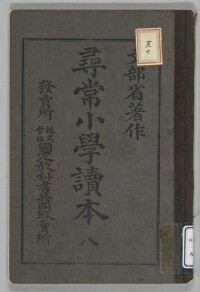 文部省著作
尋常小學讀本 八
發賣所 株式會社 國定教科書共同販賣所